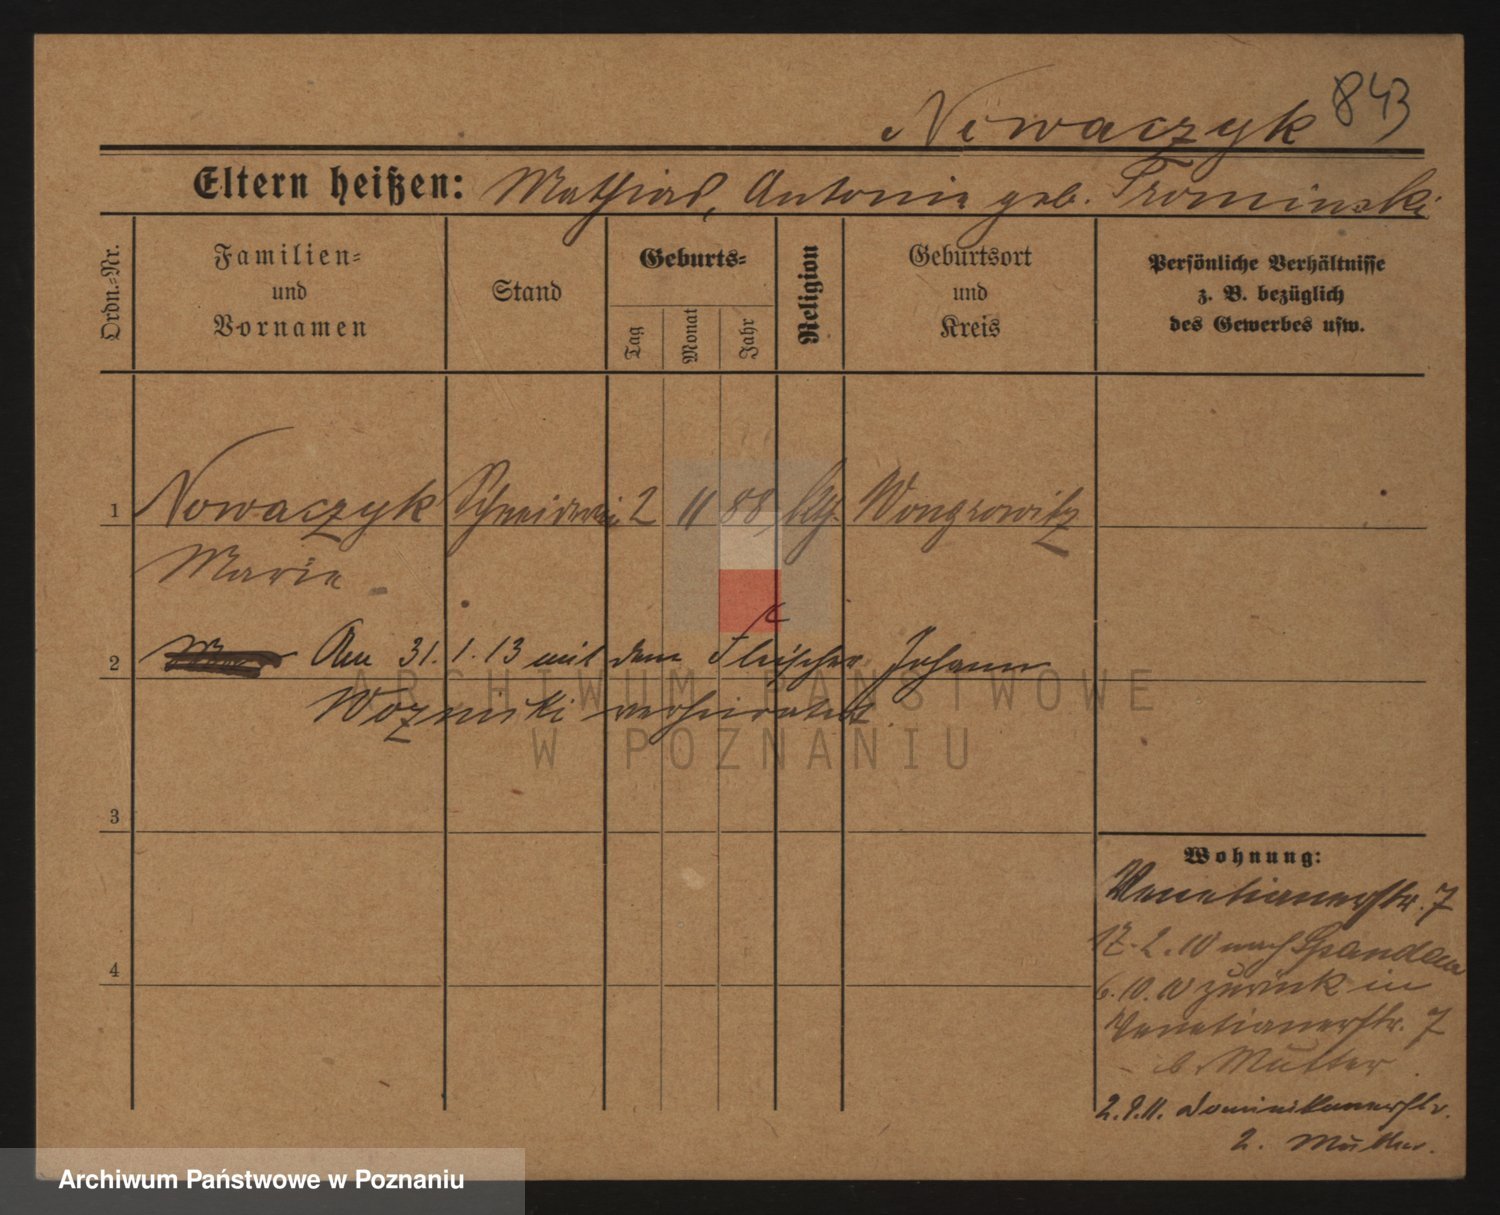 Nowaczyk 843
Eltern heißen: Mathias, Antonie geb. Trominski
Ordn.-Nr.
Familien-
und
Vornamen
Stand
Geburts-
Tag
Monat
Jahr
Religion
Geburtsort
und
Kreis
Persönliche Verhältnisse
z. B. bezüglich
des Gewerbes usw.
1 Nowaczyk Schneiderin 2 11 88 Wongrowitz
Marie
2 Am 31.1.13 mit dem Fleischer Johann
Wozniski verheiratet.
3
4
Wohnung:
Venetianerstr. 7
17.2.10 nach Spandau
6.10.10 zurück in
Venetianerstr. 7
b. Mutter
2.9.11. Dominikanerstr.
2. Mutter.
ARCHIWUM PAŃSTWOWE
W POZNANIU
Archiwum Państwowe w Poznaniu